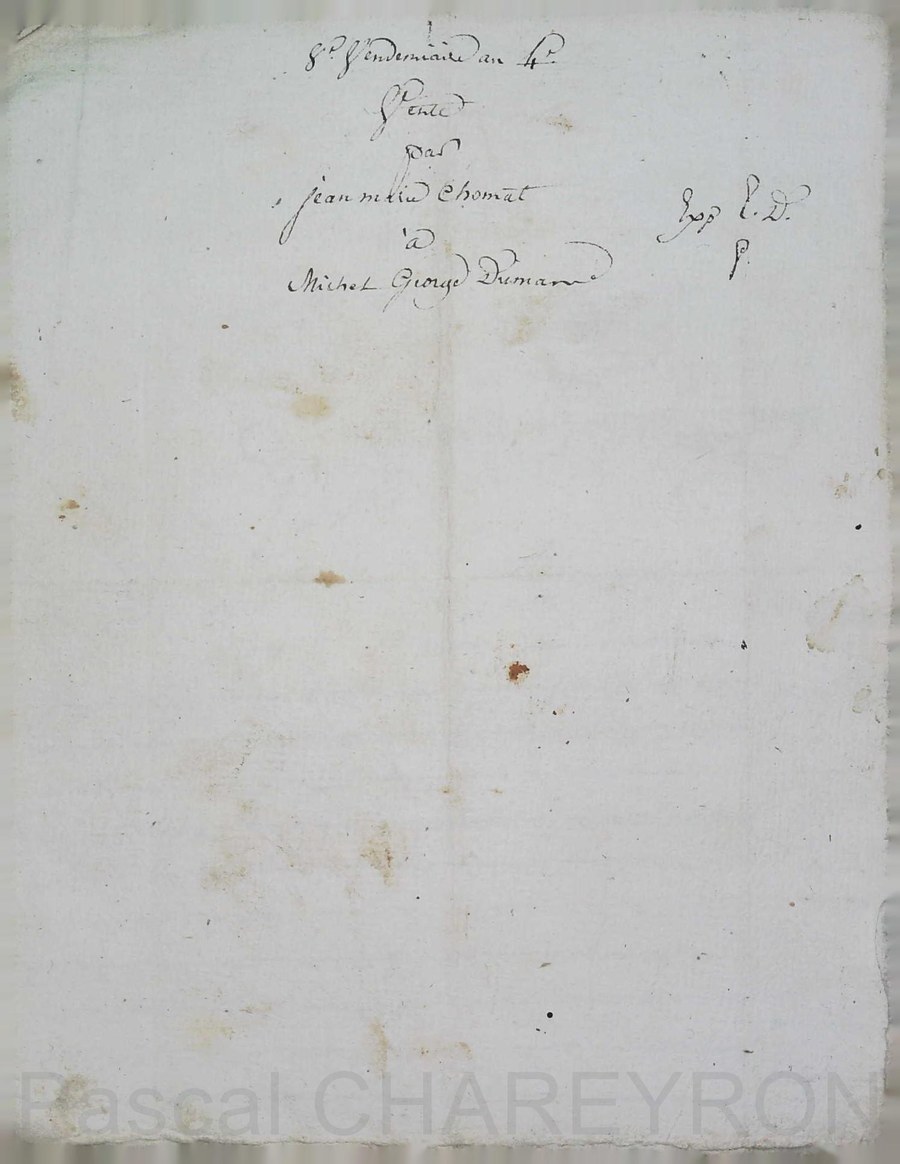 8e. Vendemiaire an 4e.
Vente
par
jean marie Chomat
à
Michel George Dumarre
Exp
Pascal CHAREYRON